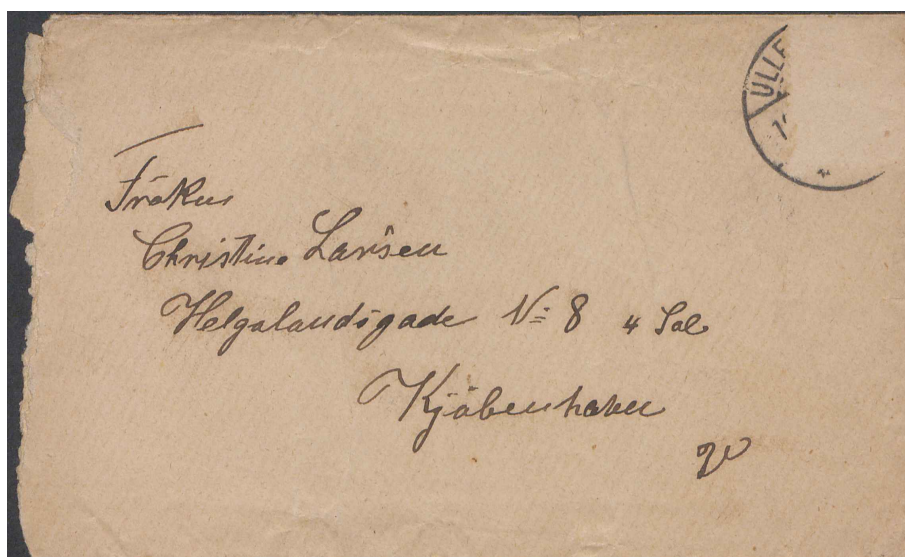 ULLE
Fröken
Christine Larsen
Helgalandsgade No 8 4 Sal
Kjöbenhaven